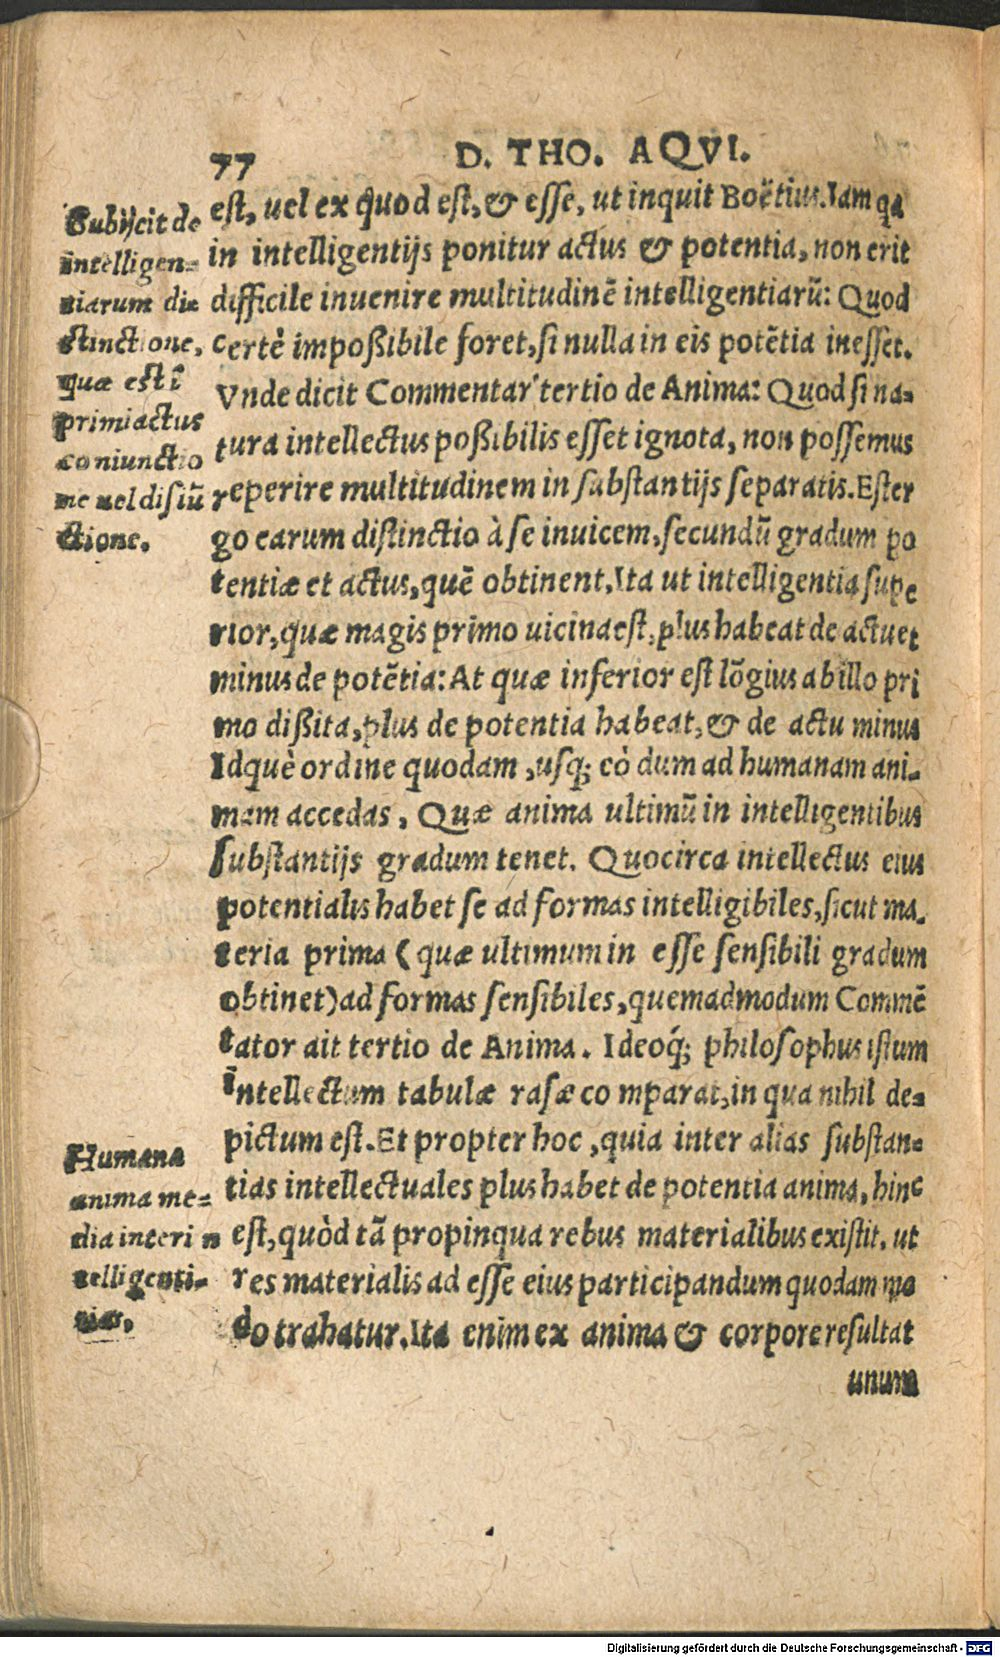 77
D. THO. AQVI.
est, uel ex quod est, & esse, ut inquit Boëtius. Iam qa
in intelligentijs ponitur actus & potentia, non erit
difficile inuenire multitudinē intelligentiarū: Quod
certè impoßibile foret, si nulla in eis potētia inesset.
Vnde dicit Commentar' tertio de Anima: Quod si na-
tura intellectus poßibilis esset ignota, non possemus
reperire multitudinem in substantijs separatis. Est er
go earum distinctio à se inuicem, secundū gradum po
tentiæ et actus, quē obtinent. Ita ut intelligentia supe
rior, quæ magis primo uicina est, plus habeat de actu et
minus de potētia: At quæ inferior est lōgius ab illo pri
mo dißita, plus de potentia habeat, & de actu minus
Idquè ordine quodam, usq; eò dum ad humanam ani-
mam accedas. Quæ anima ultimū in intelligentibus
substantijs gradum tenet. Quocirca intellectus eius
potentialis habet se ad formas intelligibiles, sicut ma-
teria prima (quæ ultimum in esse sensibili gradum
obtinet) ad formas sensibiles, quemadmodum Commē
tator ait tertio de Anima. Ideoq́; philosophus istum
intellectum tabulæ rasæ co mparat, in qua nihil de-
pictum est. Et propter hoc, quia inter alias substan-
tias intellectuales plus habet de potentia anima, hinc
est, quòd tā propinqua rebus materialibus existit, ut
res materialis ad esse eius participandum quodam mo
do trahatur. Ita enim ex anima & corpore resultat
unum
Subijcit de
intelligen-
tiarum di-
stinctione,
quæ est ī
primi actus
coniunctio
ne uel disiū
ctione.
Humana
anima me-
dia inter i n
telligenti-
ias.
Digitalisierung gefördert durch die Deutsche Forschungsgemeinschaft - DFG